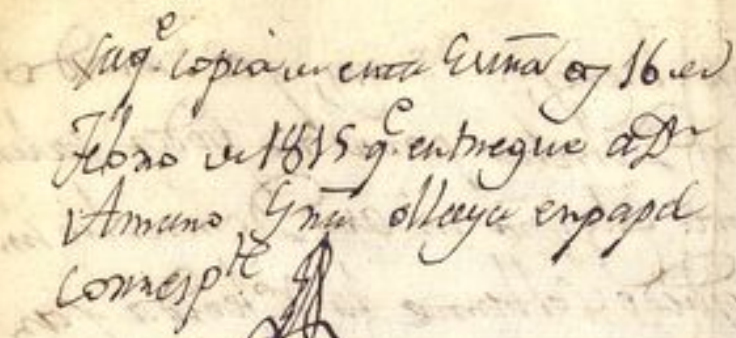 Saq.e copia de esta Esrña oy 16 de
Febro de 1815 q.e entregue a Dn
Amaro Gnz olloqu en papel
correspte